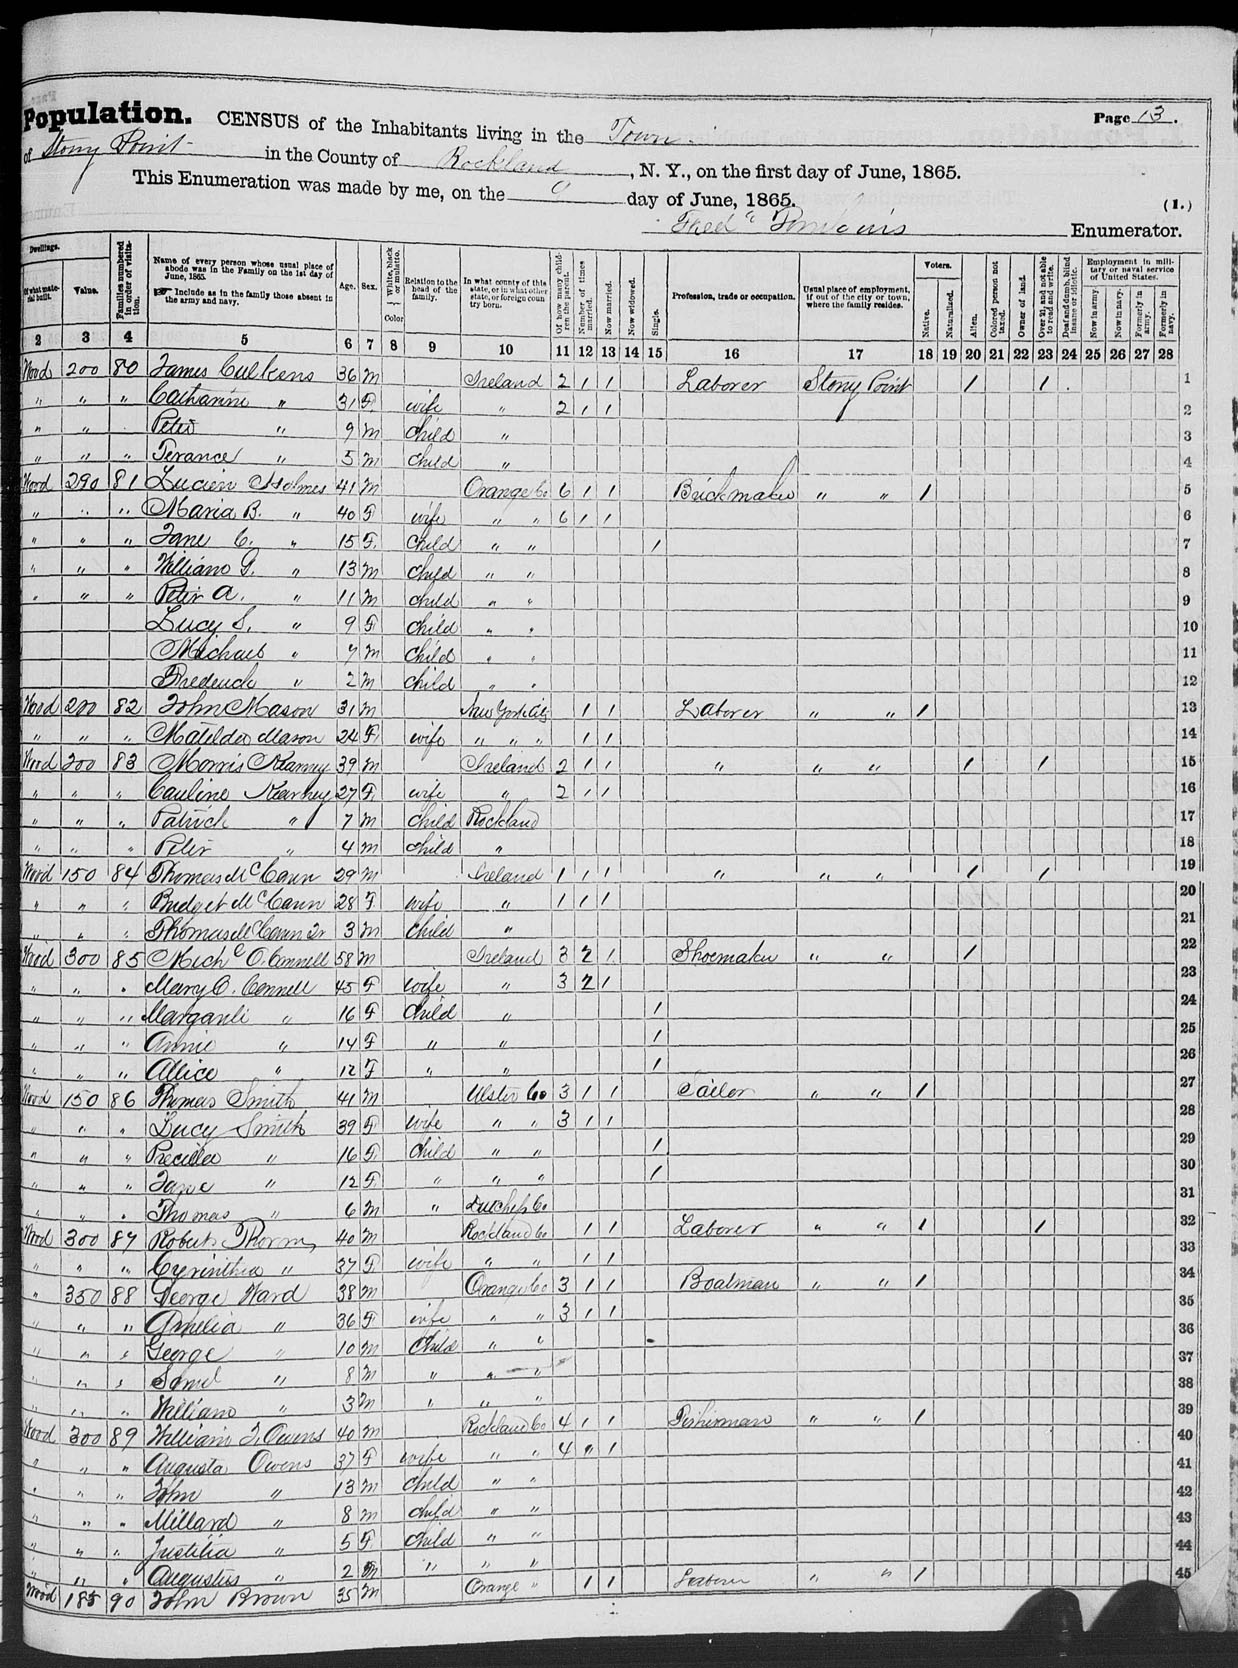 Population. CENSUS of the Inhabitants living in the Town Page 13.
of Stony Point in the County of Rockland, N. Y., on the first day of June, 1865.
This Enumeration was made by me, on the day of June, 1865. (1.)
Enumerator.
Dwellings. Of what material built. Value. Families numbered in order of visitation. Name of every person whose usual place of abode was in the Family on the 1st day of June, 1865. Include as in the family those absent in the army and navy. Age. Sex. White, black or mulatto. Color Relation to the head of the family. In what county of this state, or in what other state, or foreign country born. Of how many children the parent. Number of times married. Now married. Now widowed. Single. Profession, trade or occupation. Usual place of employment, if out of the city or town, where the family resides. Voters. Native. Naturalized. Alien. Colored person not taxed. Owner of land. Over 21, and not able to read and write. Deaf and dumb, blind insane or idiotic. Employment in military or naval service of United States. Now in army. Now in navy. Formerly in army. Formerly in navy.
2 3 4 5 6 7 8 9 10 11 12 13 14 15 16 17 18 19 20 21 22 23 24 25 26 27 28
Wood 200 80 James Culkens 36 M Ireland 2 1 1 Laborer Stony Point 1 1 1
" " " Catharine " 31 F wife " 2 1 1 2
" " Peter " 9 M Child " 3
" " " Terance " 5 M Child " 4
Wood 290 81 Lucien Holmes 41 M Orange Co 6 1 1 Brickmaker " " 1 5
" " " Maria B. " 40 F wife " " 6 1 1 6
" " " Jane C. " 15 F Child " " 1 7
" " " William G. " 13 M Child " " 8
" " " Peter A. " 11 M Child " " 9
Lucy S. " 9 F Child " " 10
Michael " 7 M Child " " 11
Frederick " 2 M Child " " 12
Wood 200 82 John Mason 31 M New York City 1 1 Laborer " " 1 13
" " " Matilda Mason 24 F wife " " " 1 1 14
Wood 200 83 Morris Kearney 39 M Ireland 2 1 1 " " " 1 1 15
" " " Cauline Kearney 27 F wife " 2 1 1 16
" " " Patrick " 7 M Child Rockland 17
" " " Peter " 4 M Child " 18
Wood 150 84 Thomas McCann 29 M Ireland 1 1 1 " " " 1 1 19
" " " Bridget McCann 28 F wife " 1 1 1 20
" " " Thomas McCann Jr 3 M Child " 21
Wood 300 85 Mich O. Connell 58 M Ireland 3 2 1 Shoemaker " " 1 22
" " " Mary O. Connell 45 F wife " 3 2 1 23
" " " " 16 F Child " 1 24
" " " Annie " 14 F " " 1 25
" " " Allice " 12 F " " 1 26
Wood 150 86 Thomas Smith 41 M Ulster Co 3 1 1 Tailor " " 1 27
" " " Lucy Smith 39 F wife " " 3 1 1 28
" " " Precilla " 16 F Child " " 1 29
" " " Jane " 12 F " " " 1 30
" " " Thomas " 6 M " Duchess Co 31
Wood 300 87 Robert Thorm 40 M Rockland Co 1 1 Laborer " " 1 1 32
" " " Cyrinthia " 37 F wife " " 1 1 33
" 350 88 George Ward 38 M Orange Co 3 1 1 Boatman " " 1 34
" " " Amelia " 36 F wife " " 3 1 1 35
" " " George " 10 M Child " " 36
" " " Saml " 8 M " " " 37
" " " William " 3 M " " " 38
Wood 300 89 William J. Owens 40 M Rockland Co 4 1 1 Fisherman " " 1 39
" " " Augusta Owens 37 F wife " " 4 " 1 40
" " " John " 13 M Child " " 41
" " " Millard " 8 M Child " " 42
" " " " 5 F Child " " 43
" " " Augustus " 2 M " " " 44
Wood 185 90 John Brown 35 M Orange " 1 1 Laborer " " 1 45